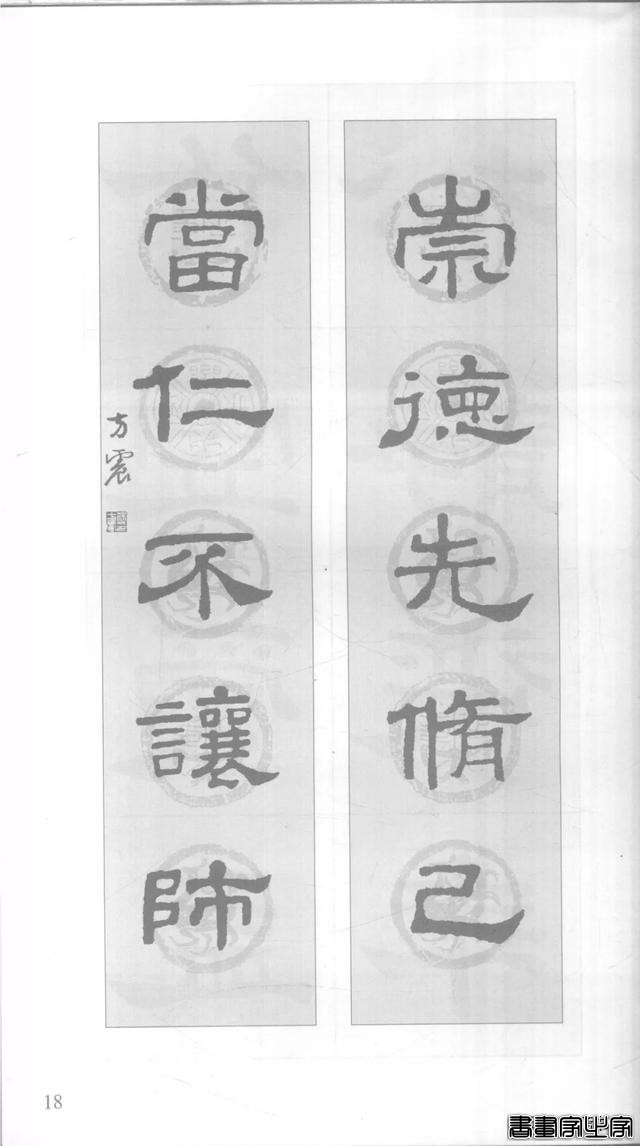 崇德先脩己
當仁不讓師
方震
18
書畫家之家